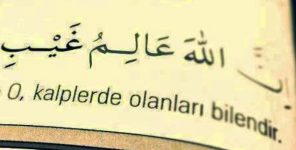 إِنَّ اللهَ عَالِمُ غَيْبِ
O, kalplerde olanları bilendir.